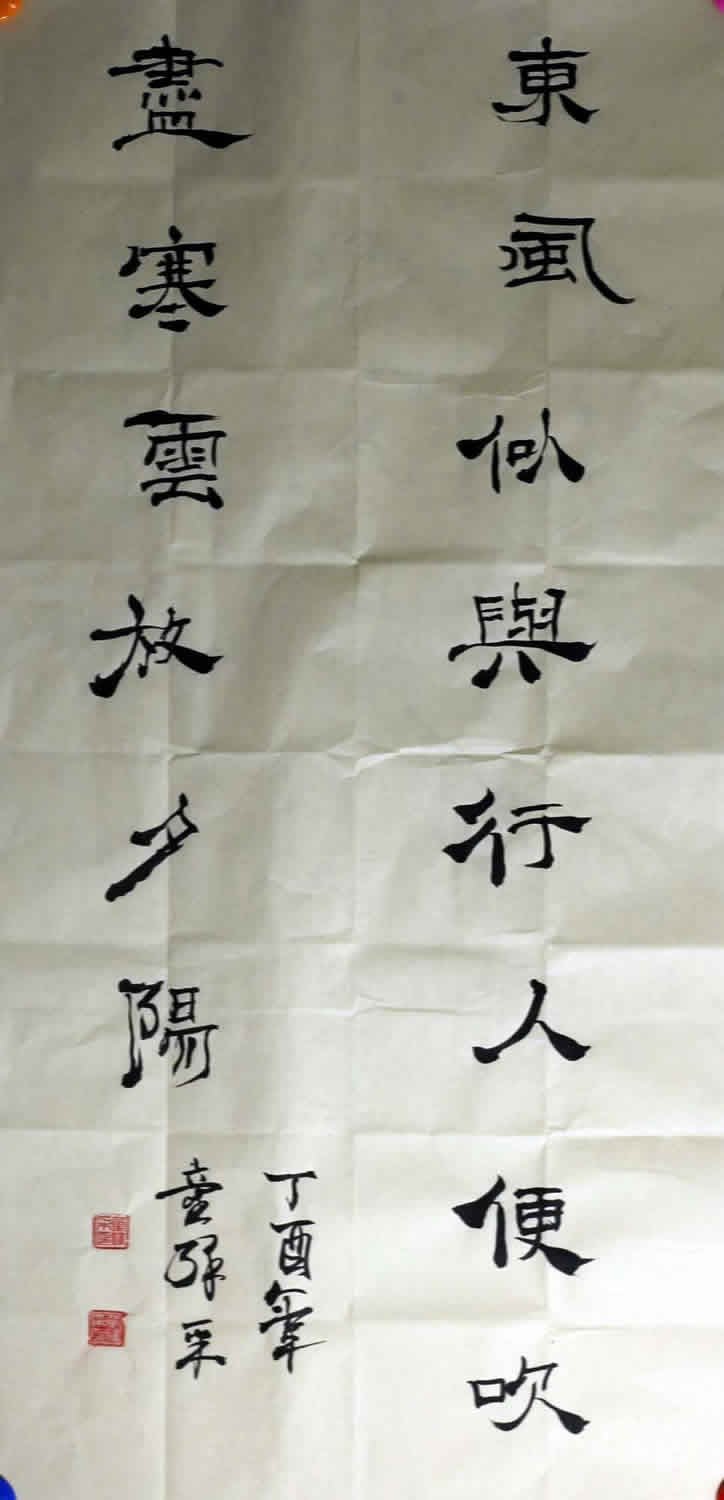 東風似與行人便吹
盡寒雲放夕陽
丁酉年
童